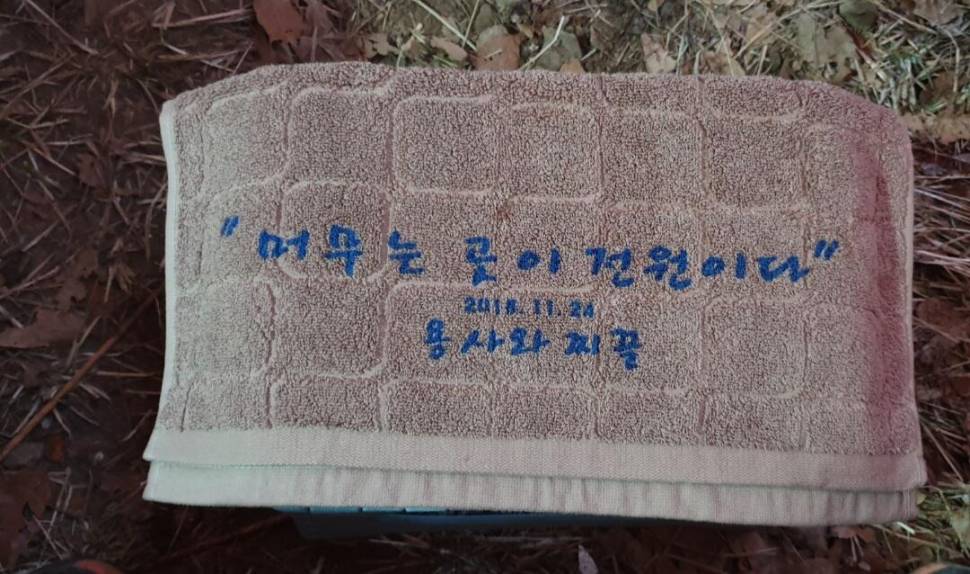 "머무는 곳이 전원이다"
2018.11.24
용사와 찌끌